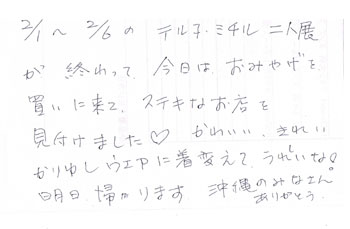 2/1~2/6の テル子・ミチル 二人展
が 終わって、今日は、おみやげを
買いに来て、ステキなお店を
見付けました♡ かわいい、きれい
かりゆしウェアに着変えて、うれしいな!
明日、帰ります。沖縄のみなさん!
ありがとう。